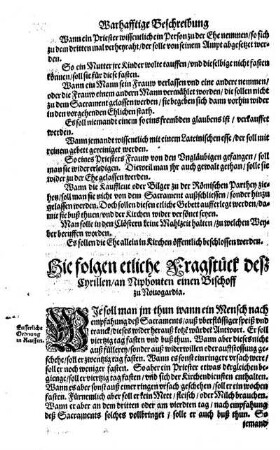 Warhafftige Beschreibung
Wann ein Priester wissentlich ein Person zu der Ehe nemmen / so sich
zu dem dritten mal verheyraht / der solle von seinem Ampt abgesetzt wer-
den.
So ein Mutter ire Kinder wolte tauffen / und dieselbige nicht fasten
können / soll sie für diese fasten.
Wann ein Mann sein Frauw verlassen und eine andere nemmen /
oder die Frauw einem andern Mann vermählet worden / die sollen nicht
zu dem Sacrament gelassen werden / sie begeben sich dann vorhin wider
in den vorgehenden Ehlichen stath.
Es sell niemand einem so eins frembden glaubens ist / verkaufft
werden.
Wann jemand wissentlich mit einem Lateinischen esse / der soll mit
reinem gebett gereiniget werden.
So eines Priesters Frauw von den Unglaubigen gefangen / soll
man sie wider erledigen. Dieweil man ihr auch gewalt gethan / solle sie
wider zu der Ehe gelassen werden.
Wann die Kauffleut oder Bilger zu der Römischen Parthey zie-
hen / soll man sie nicht von dem Sacrament außschliessen / sonder hinzu
gelassen werden. Doch sollen diesen etliche Gebett aufferlegt werden / da-
mit sie buß thuen / und der Kirchen wider versönet seyen.
Man solle in den Clöstern keine Mahlzeit halten / zu welchen Wey-
ber beruffen worden.
Es sollen die Ehe allein in Kirchen öffentlich beschlossen werden.
Hie folgen etliche Fragstück deß
Cyrillen / an Niphonten einen Bischoff
zu Novogardia.
Wie soll man jm thun wann ein Mensch nach
empfahung deß Sacraments / auß überflüssiger speiß und
tranck / diese wider herauß kotzt würde? Antwort. Er soll
viertzig tag fasten und buß thun. Wann aber dieses nicht
auß fülleren / sonder auß widerwillen oder aufstossung ge-
schehe / soll er zwentzig tag fasten. Wann es sonst ein ringere ursach wert /
soll er noch weniger fasten. So aber ein Priester etwas dergleichen be-
gienge / soll er viertzig tag fasten / und sich der Kirchendiensten enthalten.
Wann es aber sonst auß einer ringen ursach geschehen / soll er ein wochen
fasten. Fürnemlich aber soll er kein Meet / fleisch / oder Milch brauchen.
Wann er aber an dem dritten oder am vierdten tag / nach empfahung
deß Sacraments solches vollbringet / solle er auch buß thun. So
jemand